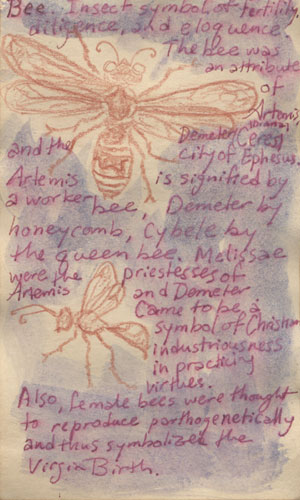 Bee. Insect symbol of fertility,
diligence, and eloquence.
The bee was
an attribute
of
Artemis
Demeter (Roman Ceres)
and the city of Ephesus.
Artemis is signified by
a worker bee, Demeter by
honeycomb, Cybele by
the queen bee. Melissae
were the priestesses of
Artemis and Demeter
Came to be a
symbol of Christian
industriousness
in practicing
virtues.
Also, female bees were thought
to reproduce parthogenetically
and thus symbolized the
Virgin Birth.